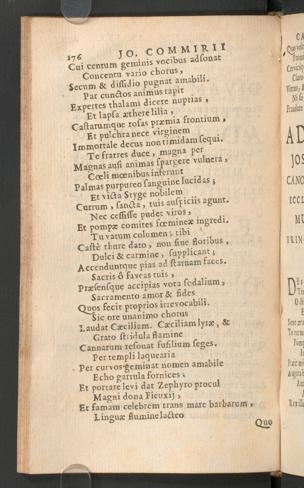 176 JO. COMMIRII
Cui centum geminis vocibus adsonat
Concentu vario chorus,
Secum & dissidio pugnat amabili.
Par cunctos animus rapit
Expertes thalami dicere nuptias,
Et lapsa æthere lilia,
Castarumque rosas præmia frontium,
Et pulchra nece virginem
Immortale decus non timidam sequi.
Te fratres duce, magna per
Magnas ausi animas spargere vulnera,
Cœli mœnibus inferunt
Palmas purpureo sanguine lucidas;
Et victa Styge nobilem
Currum, sancta, tuis auspiciis agunt.
Nec cessisse pudet viros,
Et pompæ comites fœmineæ ingredi.
Tu vatum columen; tibi
Castè thure dato, non sine floribus,
Dulci & carmine, supplicant;
Accenduntque pias ad statuam faces.
Sacris ô faveas tuis,
Præsensque accipias vota sodalium,
Sacramento amor & fides
Quos fecit proprios irrevocabili.
Sic ore unanimo chorus
Laudat Cæciliam. Cæciliam lyræ, &
Grato stridula flamine
Cannarum resonat fusilium seges.
Per templi laquearia
Per curvos geminat nomen amabile
Echo garrula fornices:
Et portare levi dat Zephyro procul
Magni dona Fieuxij,
Et famam celebrem trans mare barbarum,
Linguæ flumine lacteo
Quo